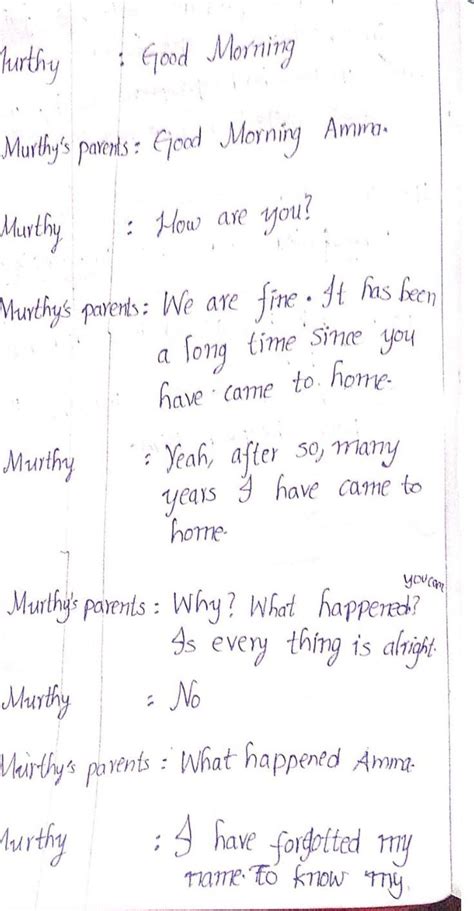 Murthy : Good Morning
Murthy's parents : Good Morning Amma.
Murthy : How are you?
Murthy's parents : We are fine. It has been
a long time since you
have came to home.
Murthy : Yeah, after so, many
years I have came to
home.
you can
Murthy's parents : Why? What happened?
Is every thing is alright.
Murthy : No
Murthy's parents : What happened Amma.
Murthy : I have forgotted my
name. To know my